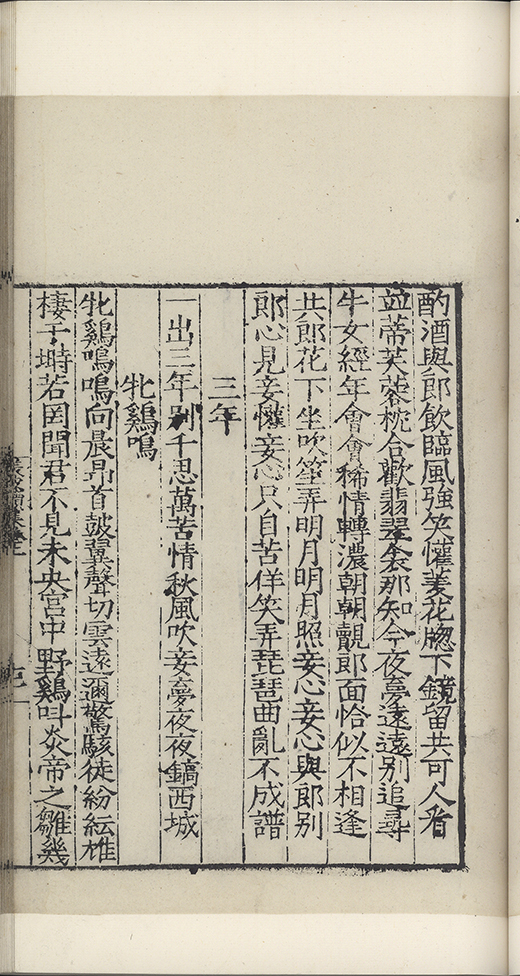 酌酒與郎飲臨風強笑懽菱花牕下鏡留共可人看
並蒂芙蓉枕合歡翡翠衾那知今夜夢遠遠別追尋
牛女經年會會稀情轉濃朝朝覿郎面恰似不相逢
共郎花下坐吹笙弄明月明月照妾心妾心與郎別
郎心見妾懽妾心只自苦佯笑弄琵琶曲亂不成譜
三年
一出三年別千思萬苦情秋風吹妾夢夜夜鎬西城
牝鷄鳴
牝鷄鳴鳴向晨昻首皷翼聲切雲遠邇驚駭徒紛紜雄
棲于塒若罔聞君不見未央宮中野鷄呌炎帝之雛幾